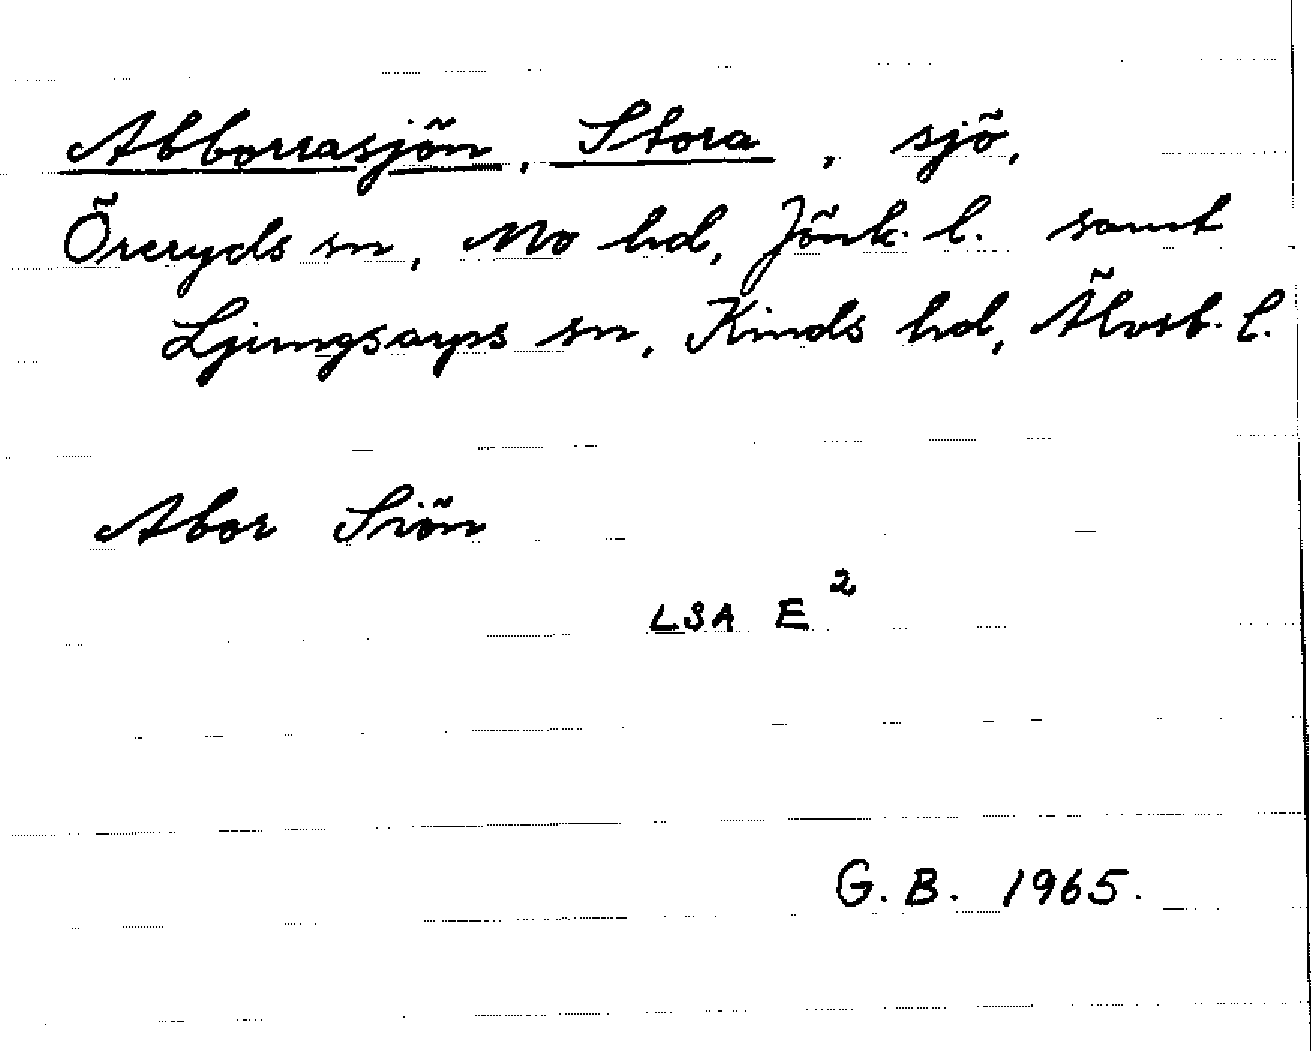 Abborrasjön, Stora, sjö,
Öreryds sn, Mo hd, Jönk. l. samt
Ljungsarps sn, Kinds hd, Älvsb. l.
Abor Siön
LSA E²
G. B. 1965.